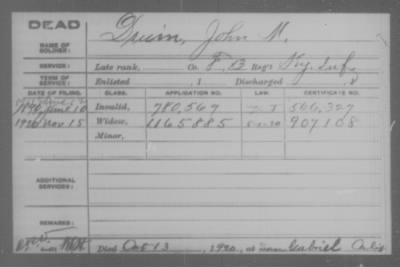 DEAD
NAME OF SOLDIER: Druin, John M.
SERVICE: Late rank, Co. F, 13 Reg't Ky. Inf.
TERM OF SERVICE: Enlisted , 1 Discharged , 8
DATE OF FILING. CLASS. APPLICATION NO. LAW. CERTIFICATE NO.
1890 June 10 Invalid, 780,567 566,327
1920 Nov. 15 Widow, 1165885 907108
Minor,
ADDITIONAL SERVICES:
REMARKS:
Died Oct 13, 1920, at Gabriel